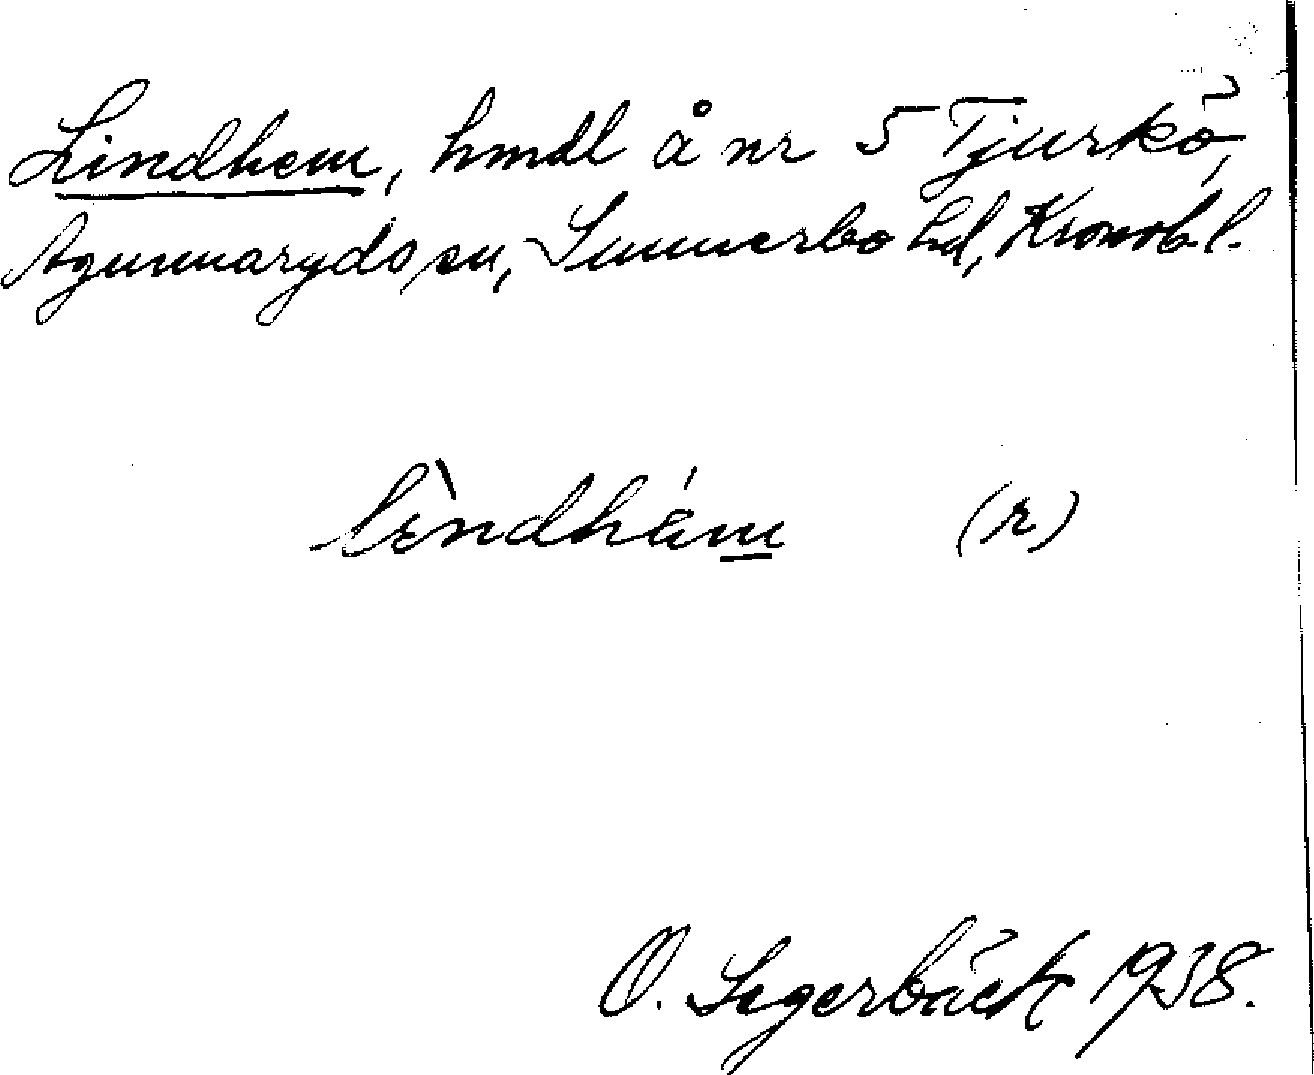 Lindhem, hmdl å nr 5 Tjurkö,
Agunnaryds sn, Sunnerbo hd, Kronob. l.
lèndhä́m (r)
O. Segerbäck 1938.